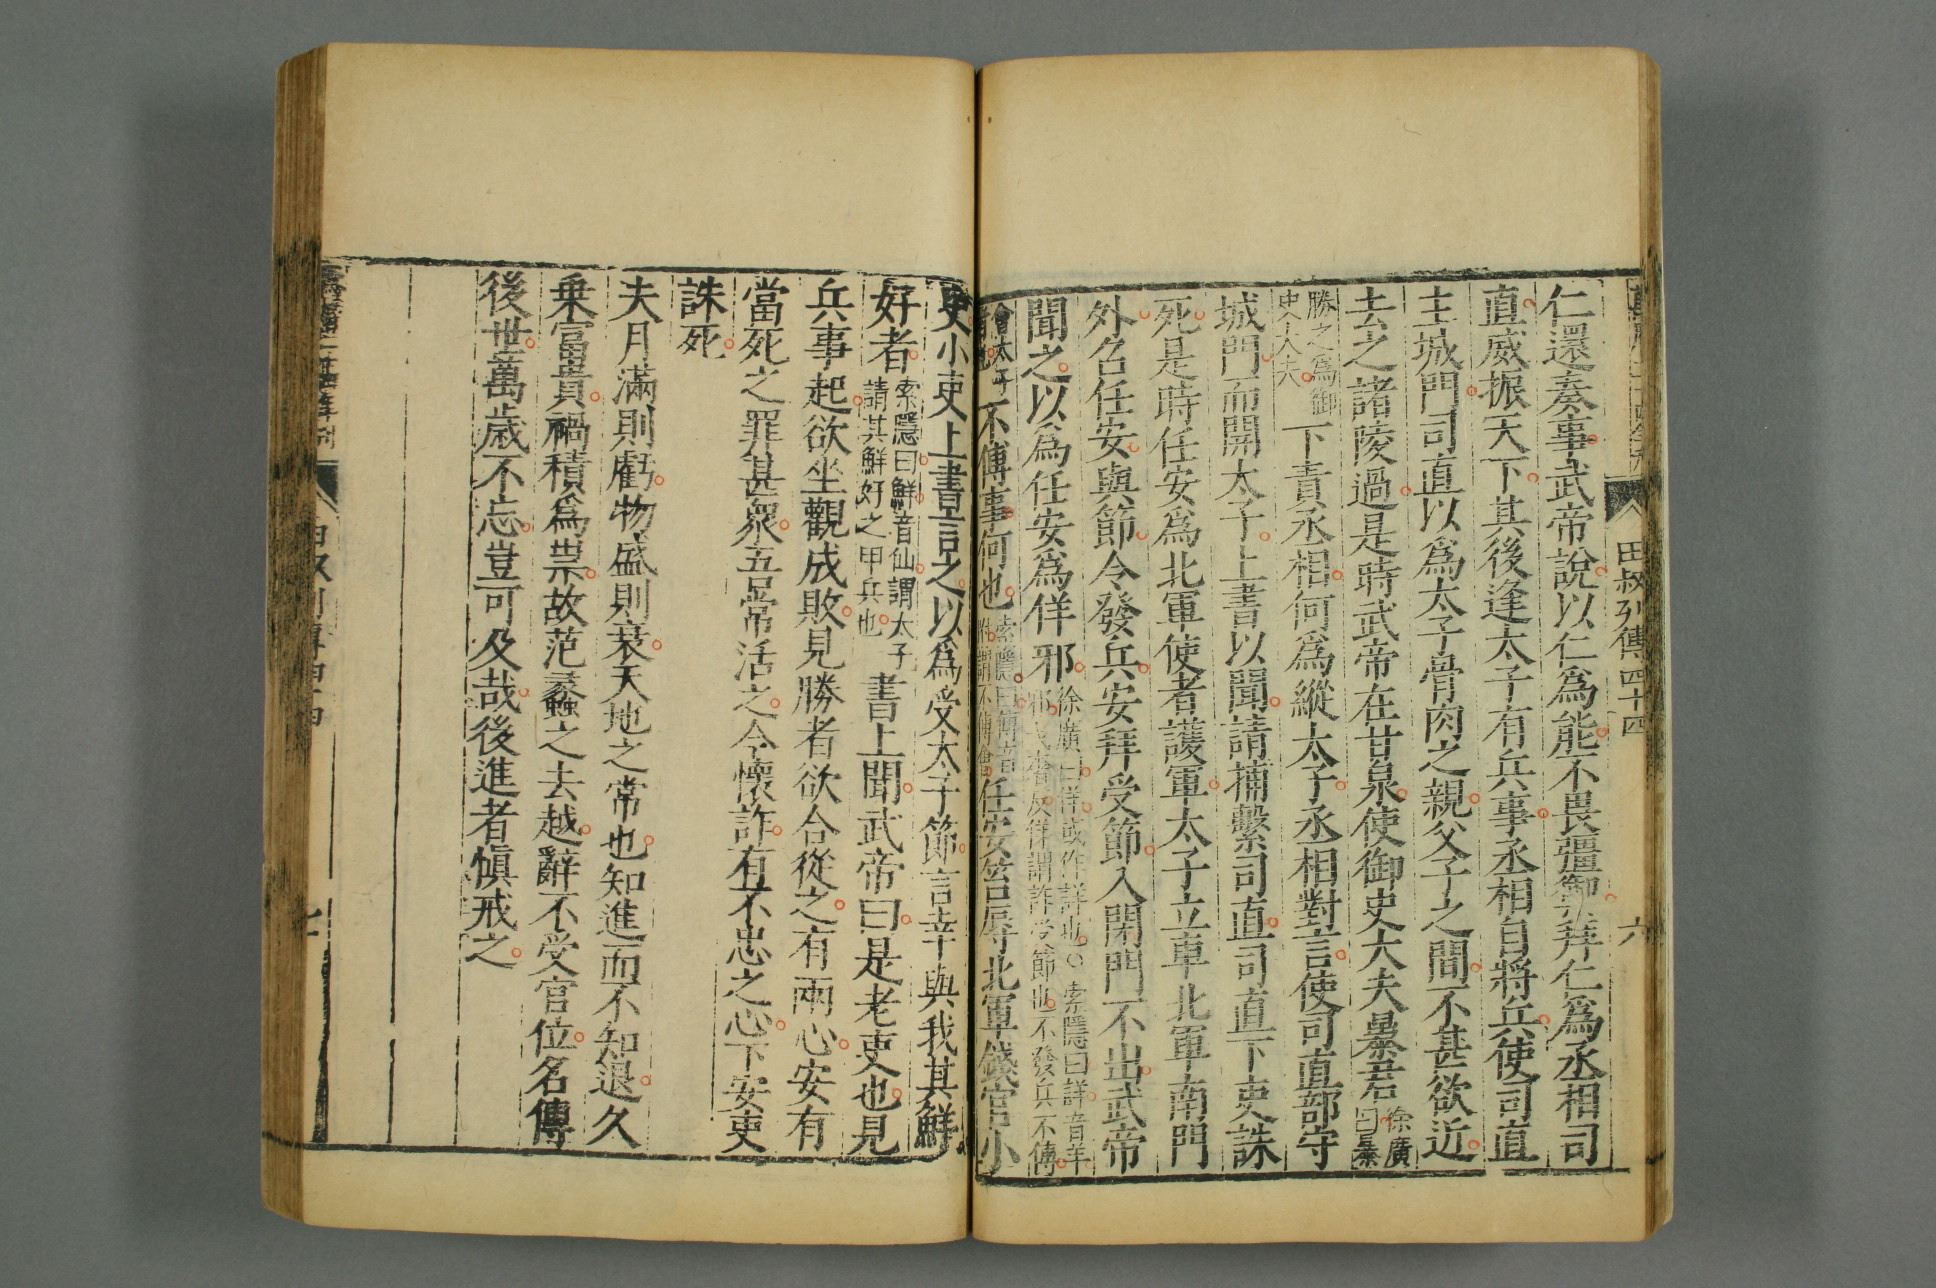 田叔列傳四十四
六
仁還奏事武帝說以仁爲能不畏彊禦拜仁爲丞相司
直威振天下其後逢太子有兵事丞相自將兵使司直
主城門司直以爲太子骨肉之親父子之間不甚欲近
去之諸陵過是時武帝在甘泉使御史大夫暴君徐廣曰暴
勝之爲御史大夫下責丞相何爲縱太子丞相對言使司直部守
城門而開太子上書以聞請捕繫司直司直下吏誅
死是時任安爲北軍使者護軍太子立車北軍南門
外召任安與節令發兵安拜受節入閉門不出武帝
聞之以爲任安爲佯邪徐廣曰佯或作詳也○索隱曰詳音羊邪弋奢反佯謂詐受節也不發兵不傅
會太子不傅事何也索隱曰傅音附不傅會任安笞辱北軍錢官小
吏小吏上書言之以爲受太子節言幸與我其鮮
好者索隱曰鮮音仙謂太子請其鮮好之甲兵也書上聞武帝曰是老吏也見
兵事起欲坐觀成敗見勝者欲合從之有兩心安有
當死之罪甚衆吾常活之今懷詐有不忠之心下安吏
誅死
夫月滿則虧物盛則衰天地之常也知進而不知退久
乗富貴禍積爲祟故范蠡之去越辭不受官位名傳
後世萬歲不忘豈可及哉後進者愼戒之
七